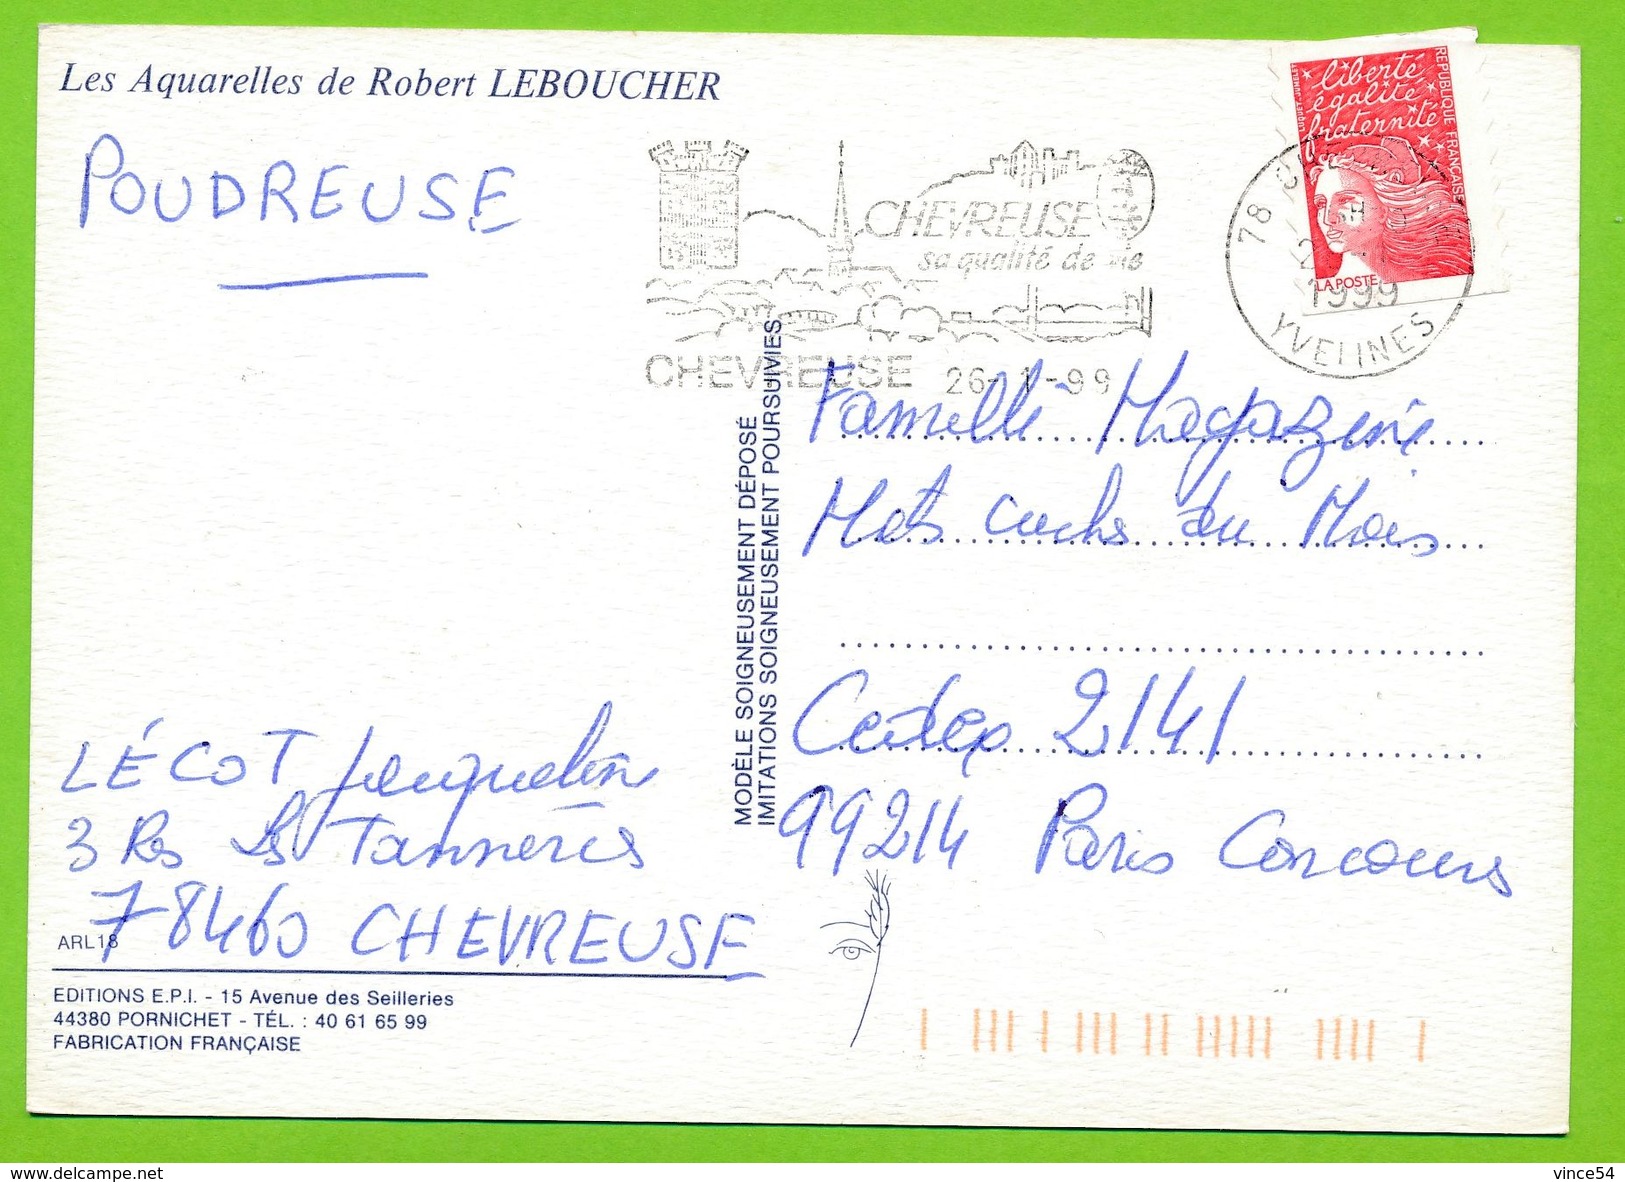 Les Aquarelles de Robert LEBOUCHER
POUDREUSE
liberté
égalité
fraternité
RÉPUBLIQUE FRANÇAISE
LA POSTE
CHEVREUSE
sa qualité de vie
CHEVREUSE 26-1-99
78
1999
YVELINES
MODÈLE SOIGNEUSEMENT DÉPOSÉ
IMITATIONS SOIGNEUSEMENT POURSUIVIES
Famille Magazine
Mots cachés du Mois
Cedex 2141
99214 Paris Concours
LÉCOT Jacqueline
3 Res Les Tanneries
78460 CHEVREUSE
ARL18
EDITIONS E.P.I. - 15 Avenue des Seilleries
44380 PORNICHET - TÉL. : 40 61 65 99
FABRICATION FRANÇAISE
www.delcampe.net
vince54